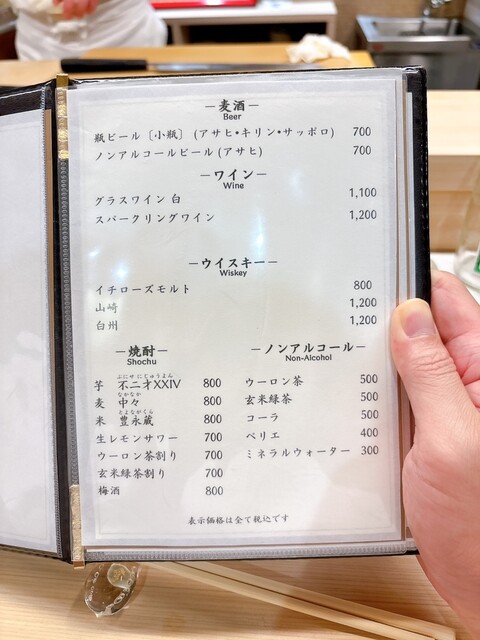 －麦酒－
Beer
瓶ビール〔小瓶〕(アサヒ・キリン・サッポロ) 700
ノンアルコールビール(アサヒ) 700
－ワイン－
Wine
グラスワイン 白 1,100
スパークリングワイン 1,200
－ウイスキー－
Wiskey
イチローズモルト 800
山崎 1,200
白州 1,200
－焼酎－
Shochu
ぶにせ にじゅうよん
芋 不二才XXIV 800
なかなか
麦 中々 800
とよながくら
米 豊永蔵 800
生レモンサワー 700
ウーロン茶割り 700
玄米緑茶割り 700
梅酒 800
－ノンアルコール－
Non-Alcohol
ウーロン茶 500
玄米緑茶 500
コーラ 500
ペリエ 400
ミネラルウォーター 300
表示価格は全て税込です